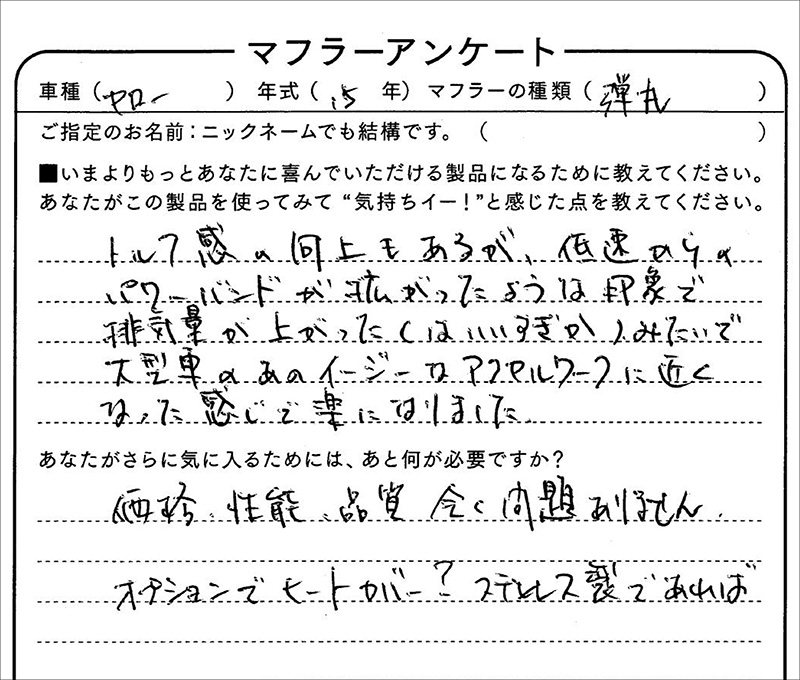 マフラーアンケート
車種（ セロー ） 年式（ 15 年） マフラーの種類（ 弾丸 ）
ご指定のお名前：ニックネームでも結構です。（ ）
■いまよりもっとあなたに喜んでいただける製品になるために教えてください。
あなたがこの製品を使ってみて“気持ちイー！”と感じた点を教えてください。
トルク感の向上もあるが、低速からの
パワーバンドが拡がったような印象で
排気量が上がった（はいいすぎか）みたいで
大型車のあのイージーなアクセルワークに近く
なった感じで楽になりました
あなたがさらに気に入るためには、あと何が必要ですか？
価格、性能、品質 全く問題ありません。
オプションでヒートカバー？ステンレス製であれば